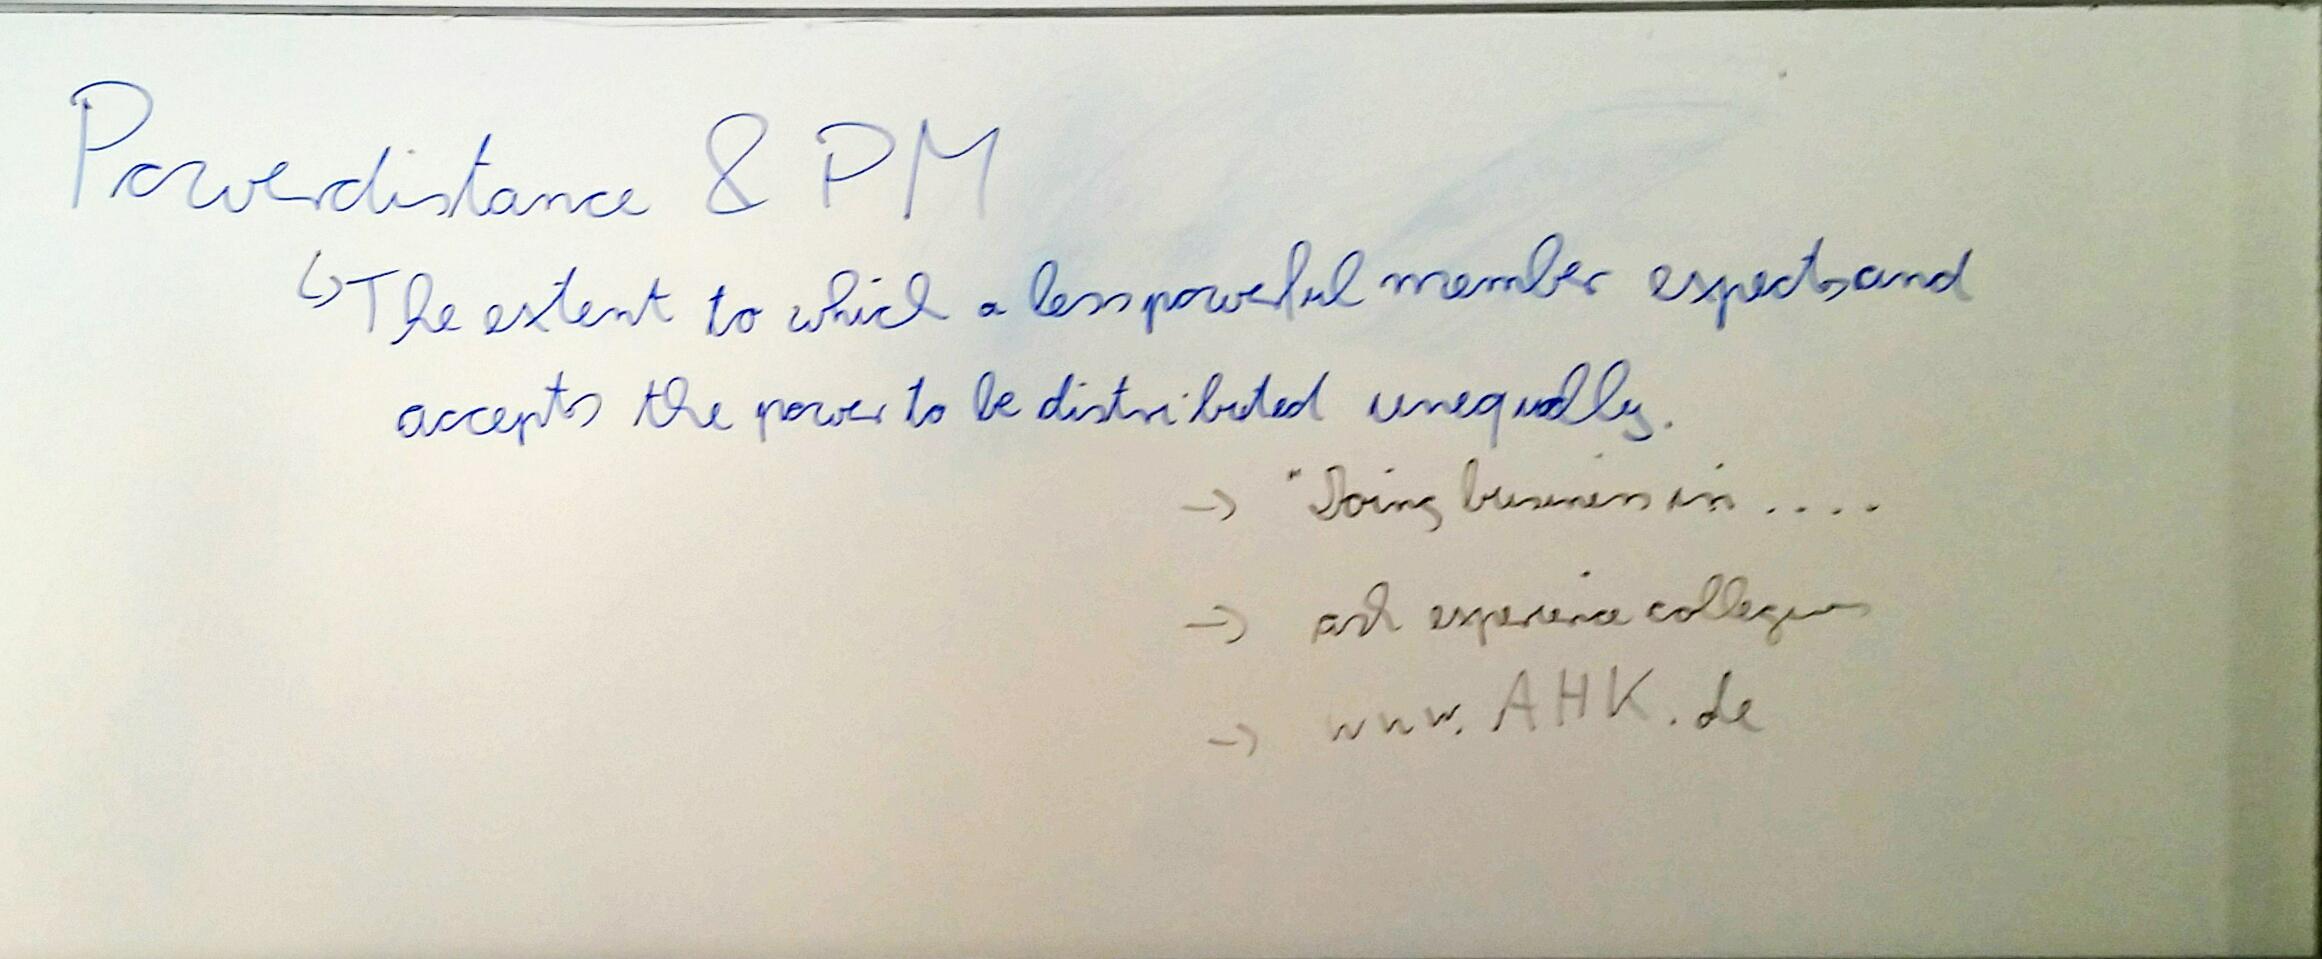 Powerdistance & PM
↳ The extent to which a less powerful member expects and
accepts the power to be distributed unequally.
→ "Doing business in ....
→ ask experience collegues
→ www.AHK.de